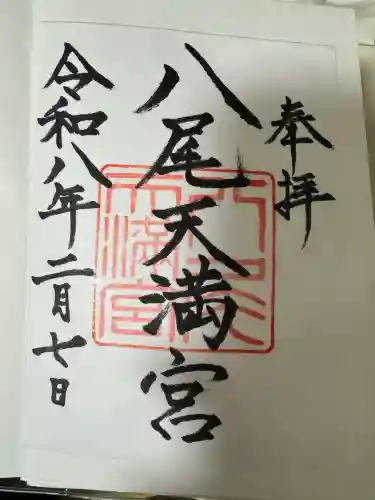 奉拝
八尾天満宮
八尾天満宮
令和八年二月七日